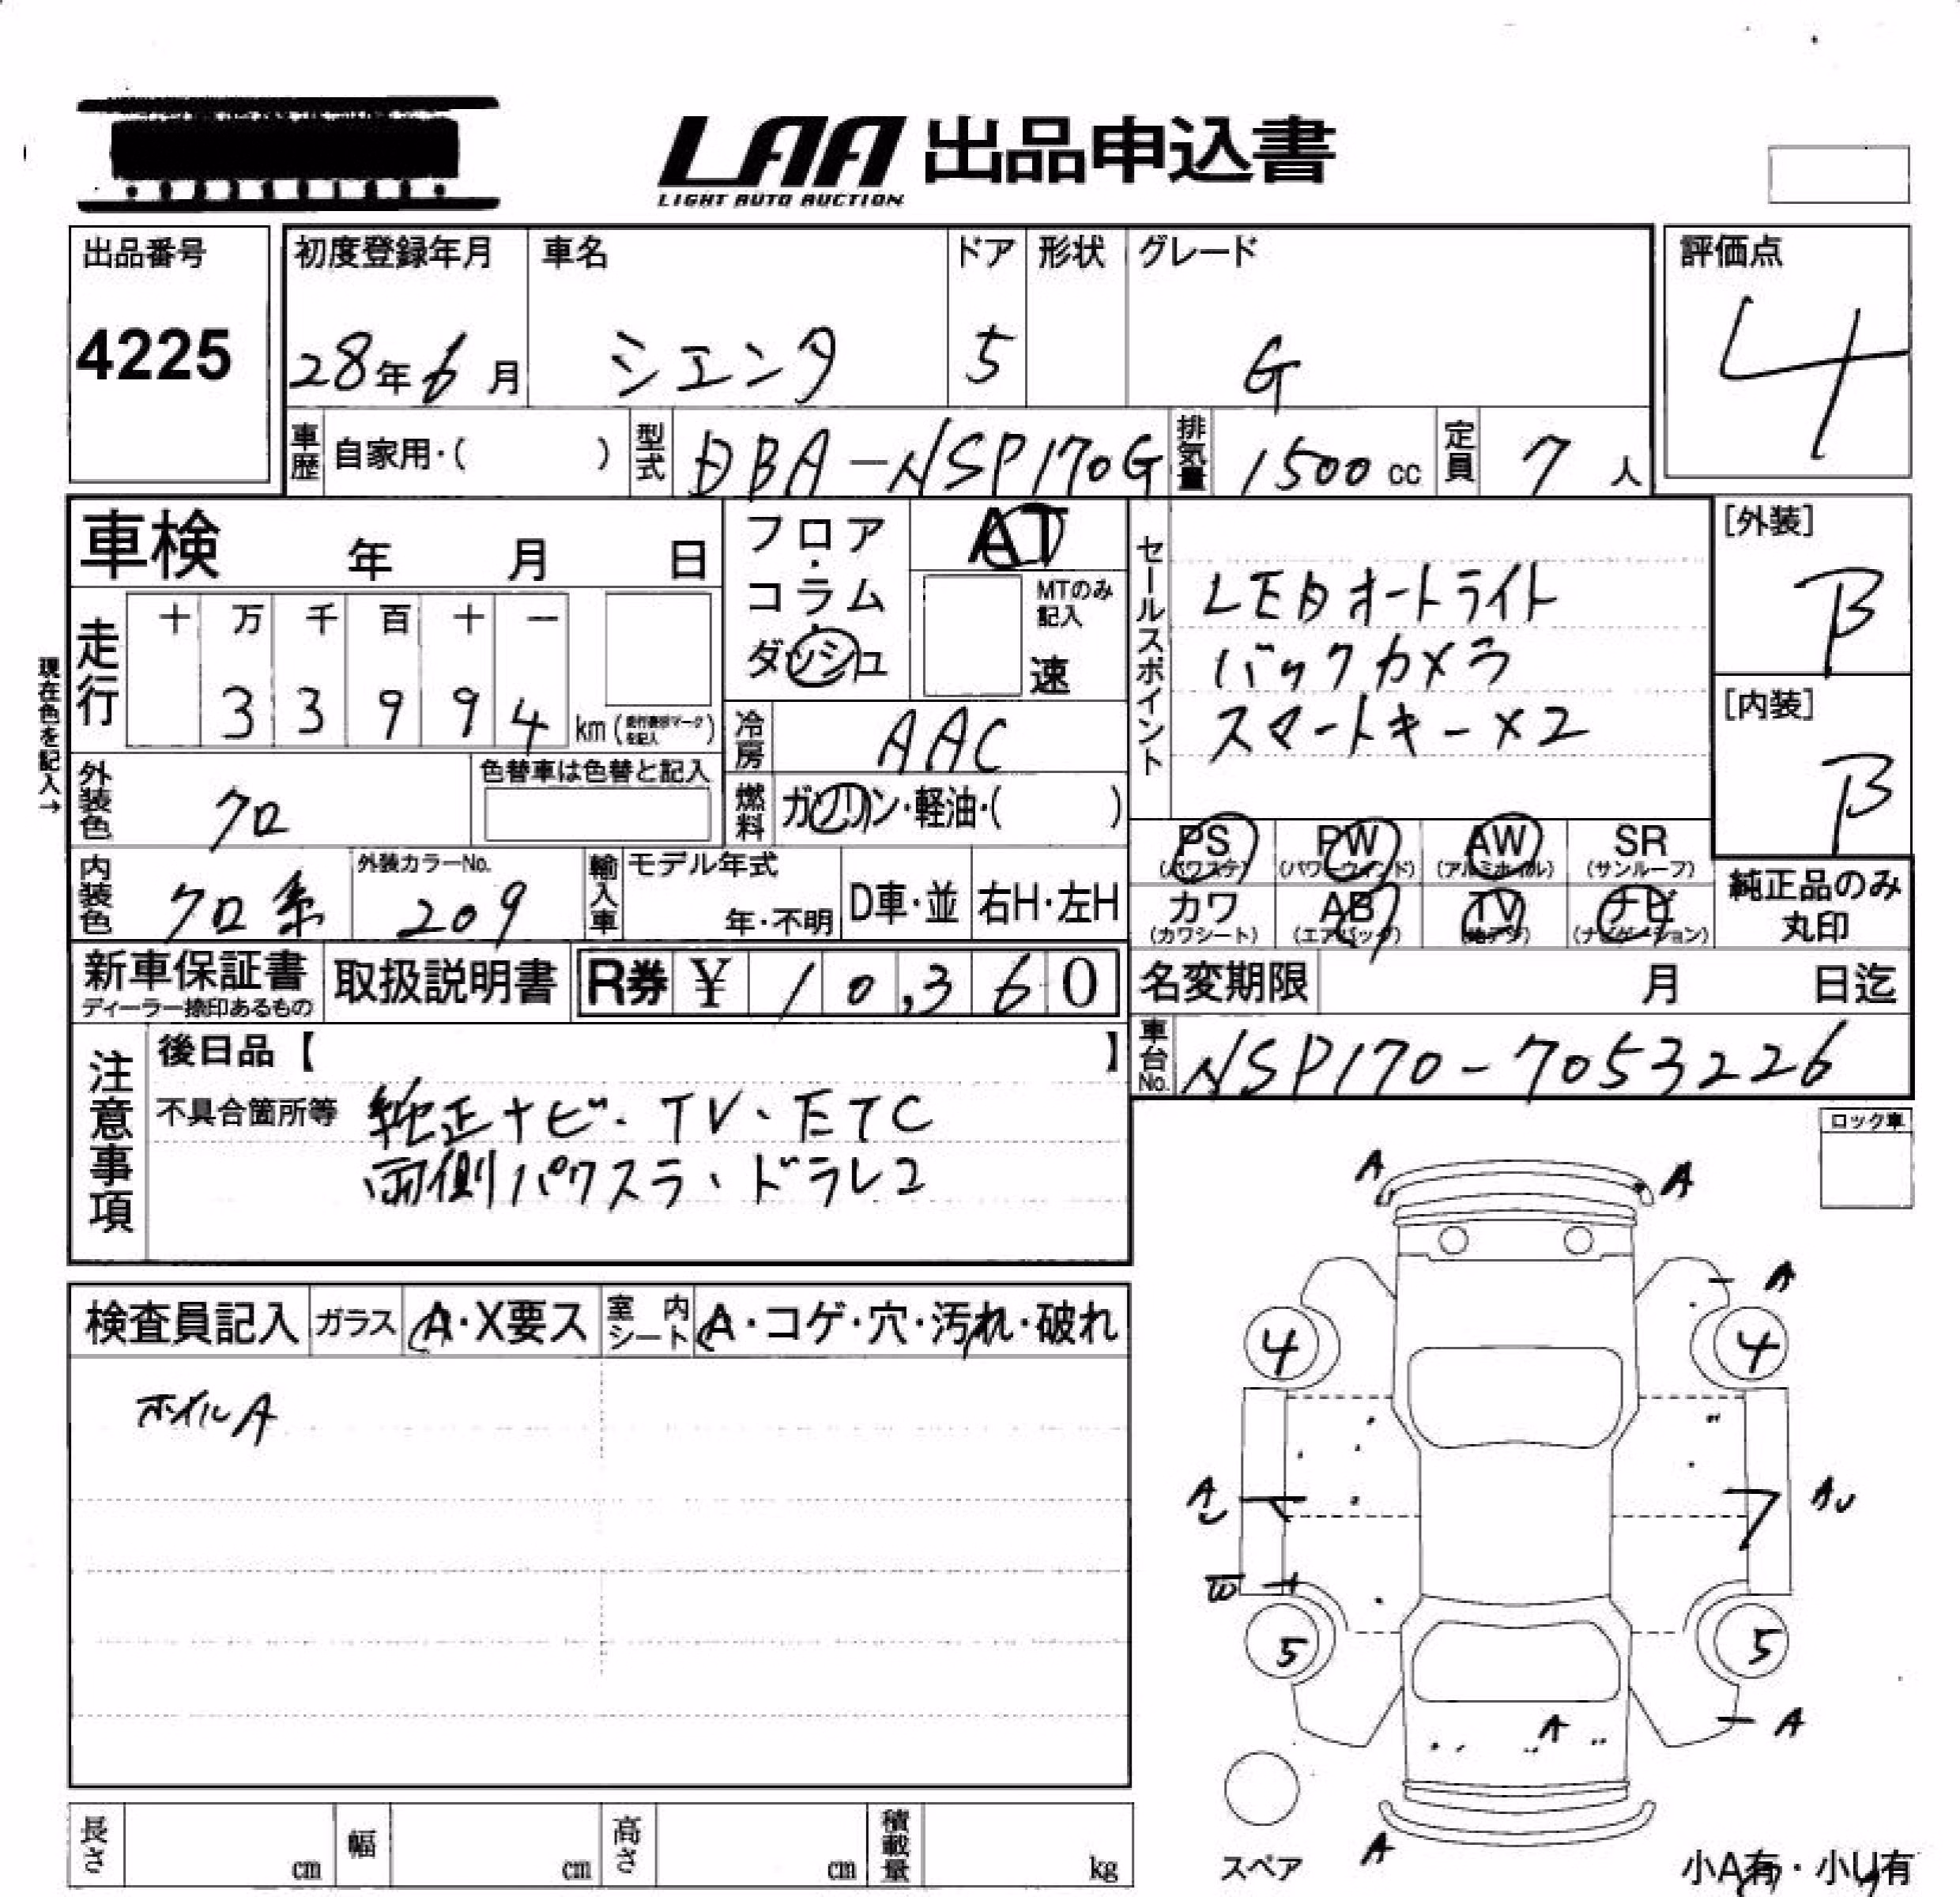 LAA 出品申込書
LIGHT AUTO AUCTION
出品番号
4225
初度登録年月
28年6月
車名
シエンタ
ドア
5
形状
グレード
G
評価点
4
車歴 自家用・( )
型式 DBA-NSP170G
排気量 1500cc
定員 7人
車検 年 月 日
フロア・コラム・ダッシュ
AT
MTのみ記入
速
セールスポイント
LEDオートライト
バックカメラ
スマートキー×2
[外装]
B
[内装]
B
現在色を記入→
走行
十 万 千 百 十 一
3 3 9 9 4 km
冷房 AAC
外装色 クロ
色替車は色替と記入
燃料 ガソリン・軽油・( )
PS (パワステ)
PW (パワーウインド)
AW (アルミホイル)
SR (サンルーフ)
カワ (カワシート)
AB (エアバッグ)
TV (地デジ)
ナビ (ナビゲーション)
純正品のみ丸印
内装色 クロ系
外装カラーNo. 209
輸入車 モデル年式
年・不明
D車・並
右H・左H
新車保証書
ディーラー捺印あるもの
取扱説明書
R券 ¥ 10,360
名変期限 月 日迄
車台No. NSP170-7053226
注意事項
後日品【 】
不具合箇所等 純正ナビ・TV・ETC
両側パワスラ、ドラレコ
ロック車
検査員記入
ガラス A・X要ス
室内シート A・コゲ・穴・汚れ・破れ
ホイルA
A A
A
4 4
A A
5 5
A
A
A
スペア
小A有・小U有
長さ cm
幅 cm
高さ cm
積載量 kg